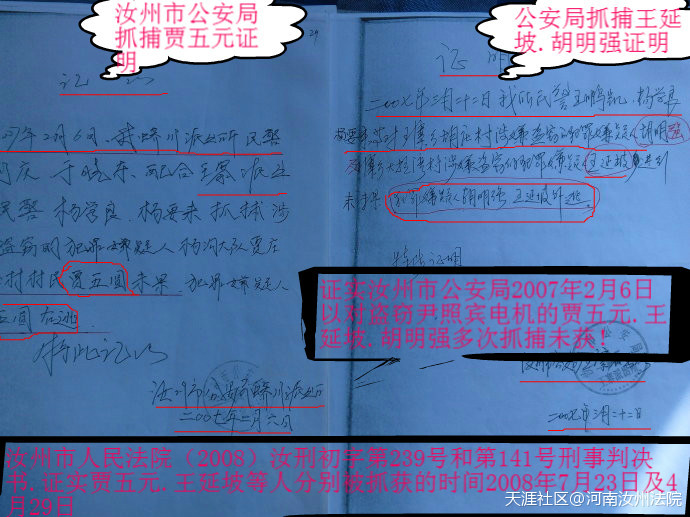 汝州市公安局
抓捕贾五元证
明
公安局抓捕王延
坡.胡明强证明
29
证
07年2月6日,我蟒川派出所民警
庆 于晓东、配合王寨派出
民警 杨学良、杨要未 抓捕涉
盗窃的犯罪嫌疑人 杨沟大队贾庄
村村民贾五圆未果.犯罪嫌疑人
五圆 在逃.
特此证明
汝州市公安局蟒川派出所
二00七年二月六日
证 明
二00七年三月二十二日我所民警王鹏凯、杨学良
村涉嫌盗窃的犯罪嫌疑人胡明强
村涉嫌盗窃的犯罪嫌疑人王延坡进行
未果 犯罪嫌疑人胡明强 王延坡外逃.
特此证明
二00七年三月二十二日
证实汝州市公安局2007年2月6日
以对盗窃尹照宾电机的贾五元.王
延坡.胡明强多次抓捕未获!
汝州市人民法院（2008）汝刑初字第239号和第141号刑事判决
书.证实贾五元.王延坡等人分别被抓获的时间2008年7月23日及4
月29日
天涯社区@河南汝州法院